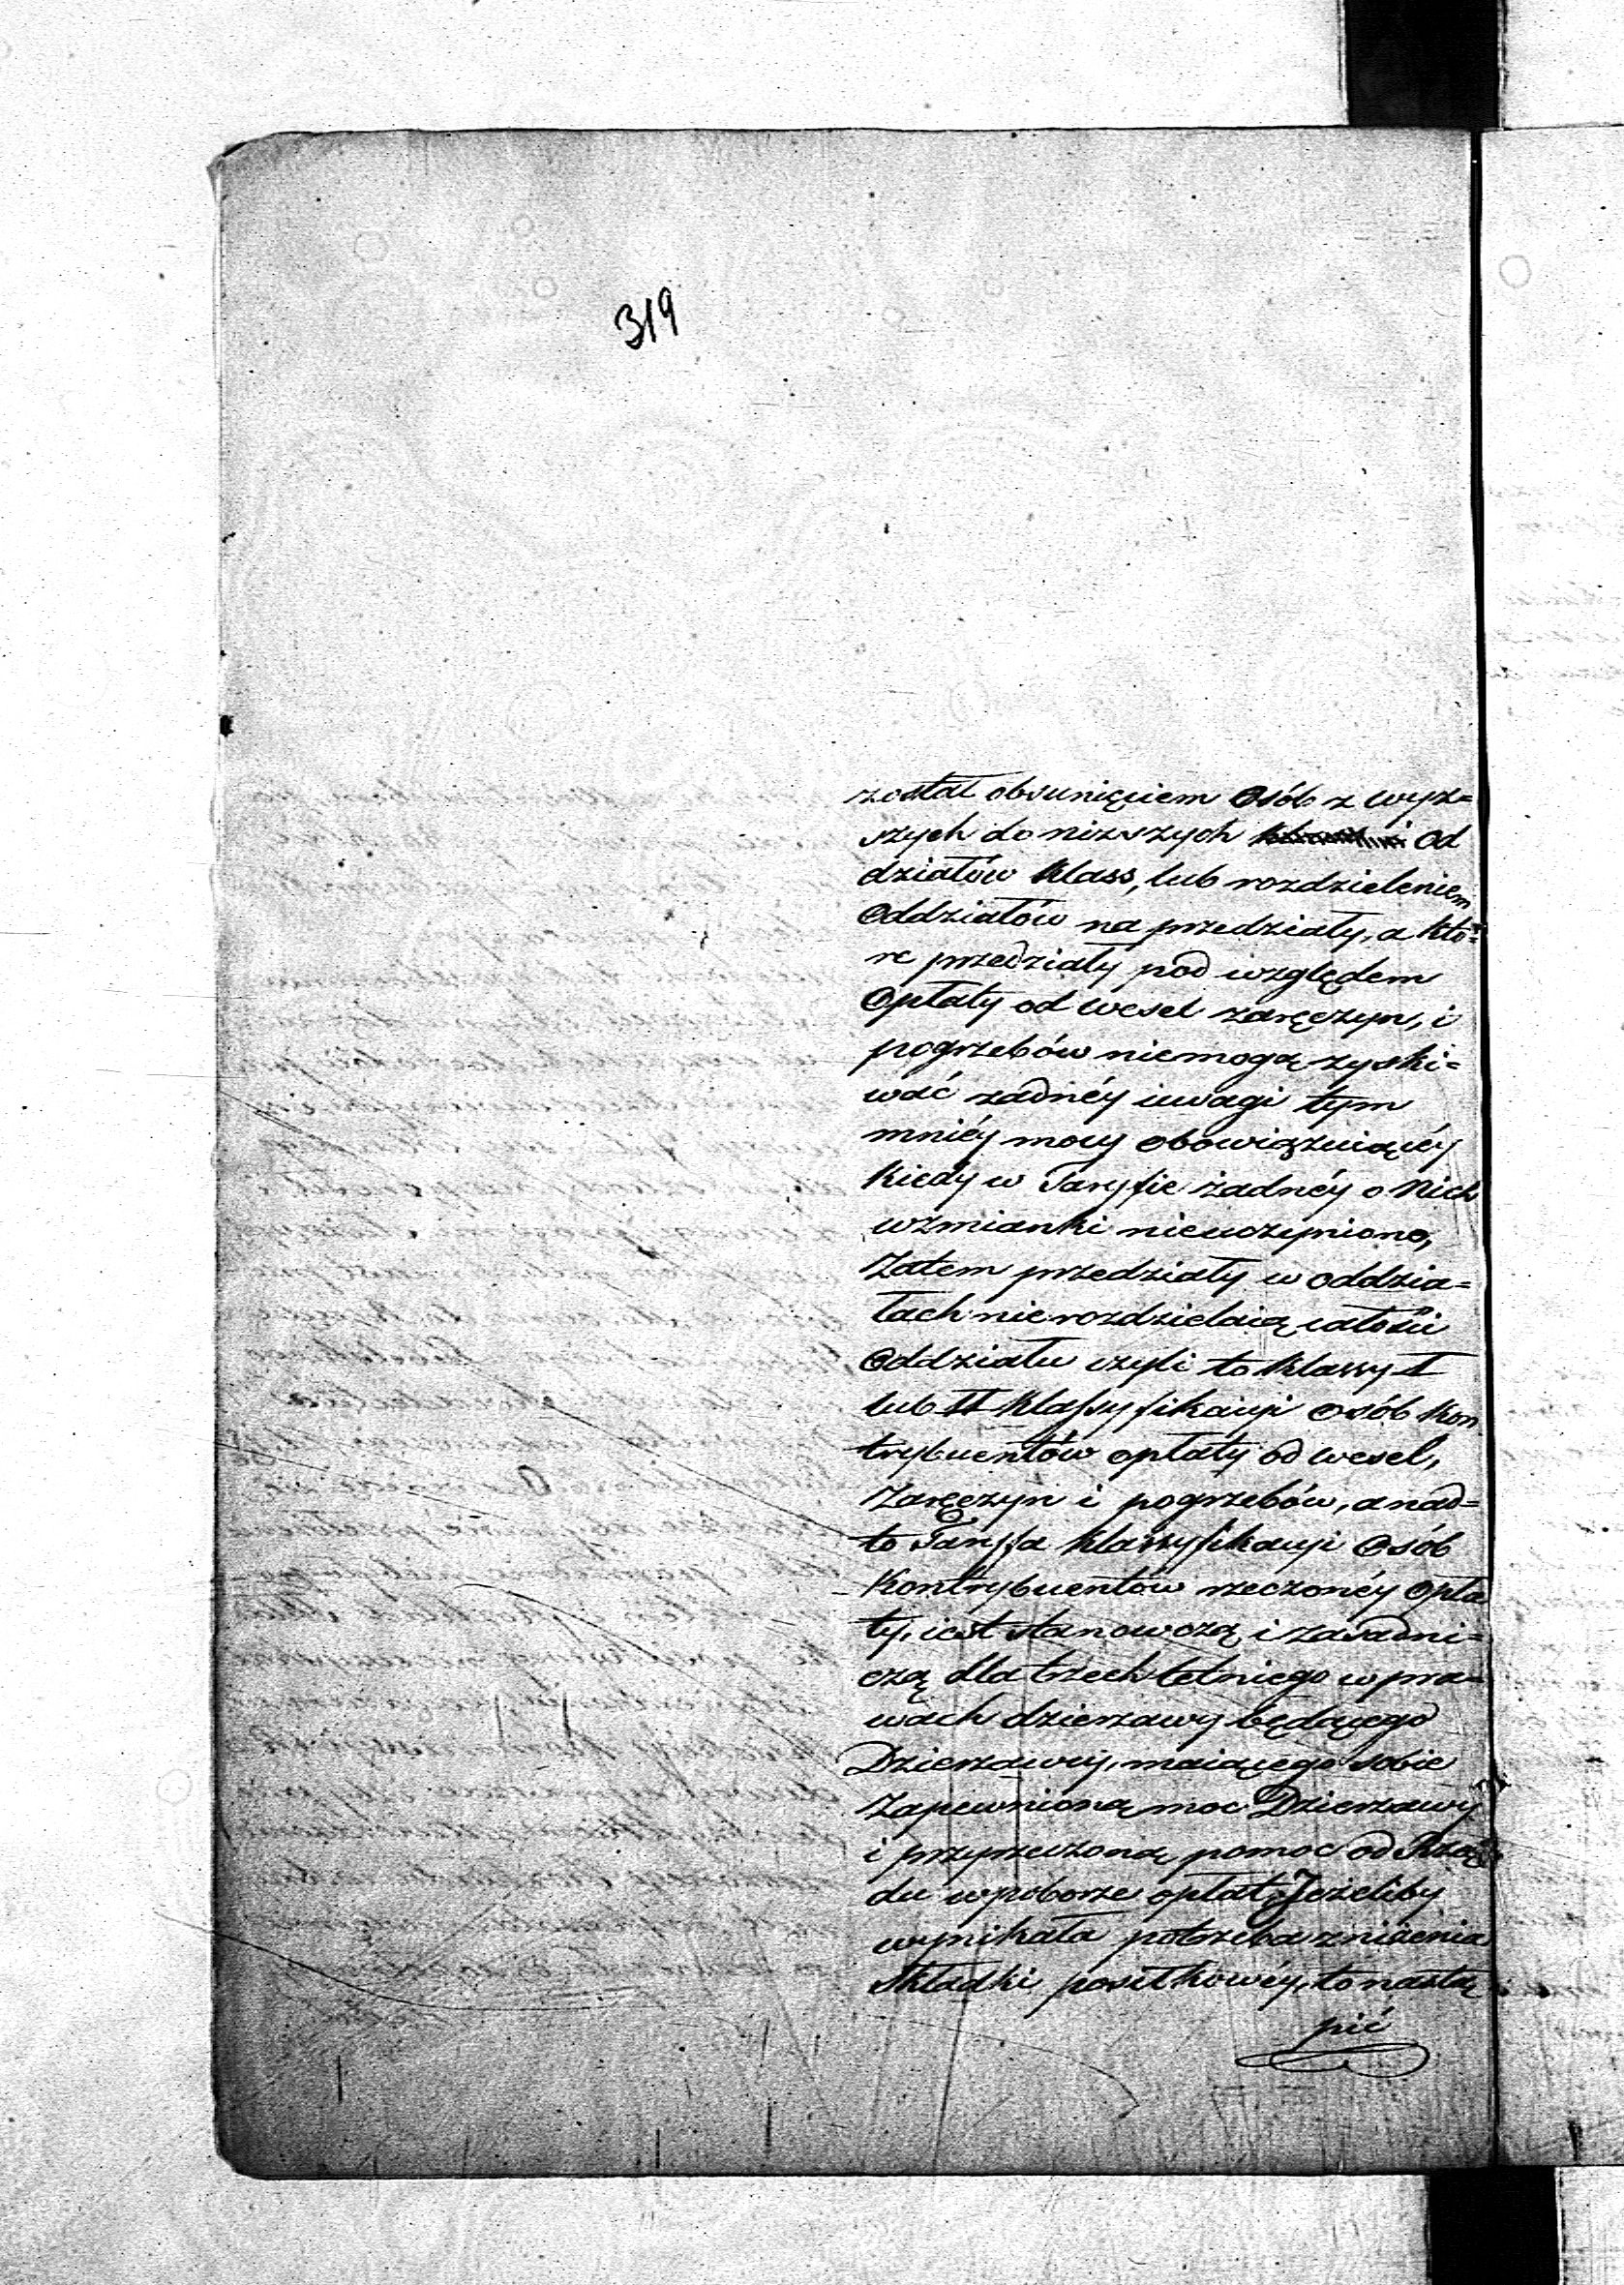 319
został obsunięciem Osób z wyż=
szych do niższych Od
działów Klass, lub rozdzieleniem
Oddziałów na przedziały, a któ=
re przedziały pod względem
Opłaty od wesel zaręczyn, i
pogrzebów niemogą zyski=
wać żadnéy uwagi tym
mniéy mocy obowiązuiącéy
Kiedy w Taryfie żadnéy o Nich
wzmianki nieuczyniono,
Zatem przedziały w oddzia=
łach nierozdzielaią całości
Oddziału czyli to Klassy I
lub II Klassyfikacyi osób Kon
trybuentów opłaty od wesel,
Zaręczyn i pogrzebów, a nad=
to Taryffa Klassyfikacyi Osób
Kontrybuentów rzeczonéy Opła
ty, iest stanowczą i zasadni=
czą dla trzechletniego w pra=
wach dzierzawy będącego
Dzierzawcy, maiącego sobie
Zapewnioną moc Dzierzawy
i przyrzeczoną pomoc od Rzą
du w poborze opłat, Jeżeliby
wynikała potrzeba zniżenia
składki posiłkowéy, to nastą
pić